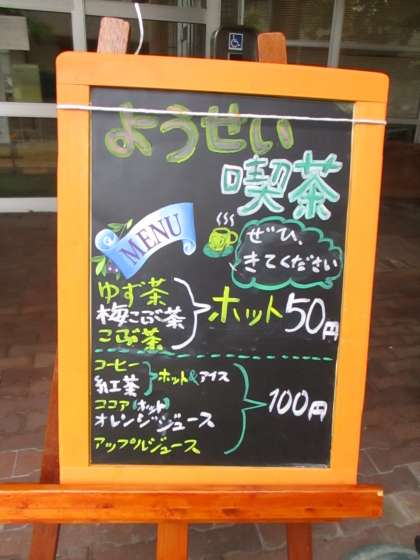 ようせい
喫茶
MENU
ぜひ、
きてください
ゆず茶
梅こぶ茶
こぶ茶
ホット 50円
コーヒー
紅茶
ホット&アイス
ココア(ホット)
オレンジジュース
アップルジュース
100円